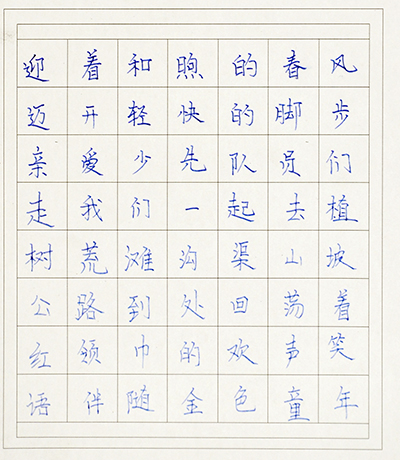 迎着和煦的春风
迈开轻快的脚步
亲爱少先队员们
走我们一起去植
树荒滩沟渠山坡
公路到处回荡着
红领巾的欢声笑
语伴随金色童年